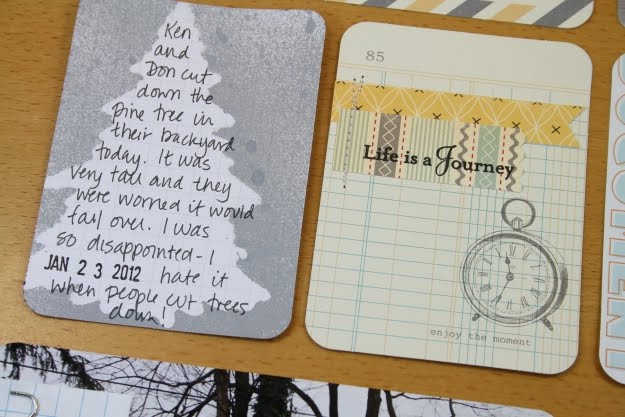 Ken
and
Don cut
down the
pine tree in
their backyard
today. It was
very tall and they
were worried it would
fall over. I was
so disappointed - I
JAN 23 2012 hate it
when people cut trees
down!
85
Life is a Journey
enjoy the moment